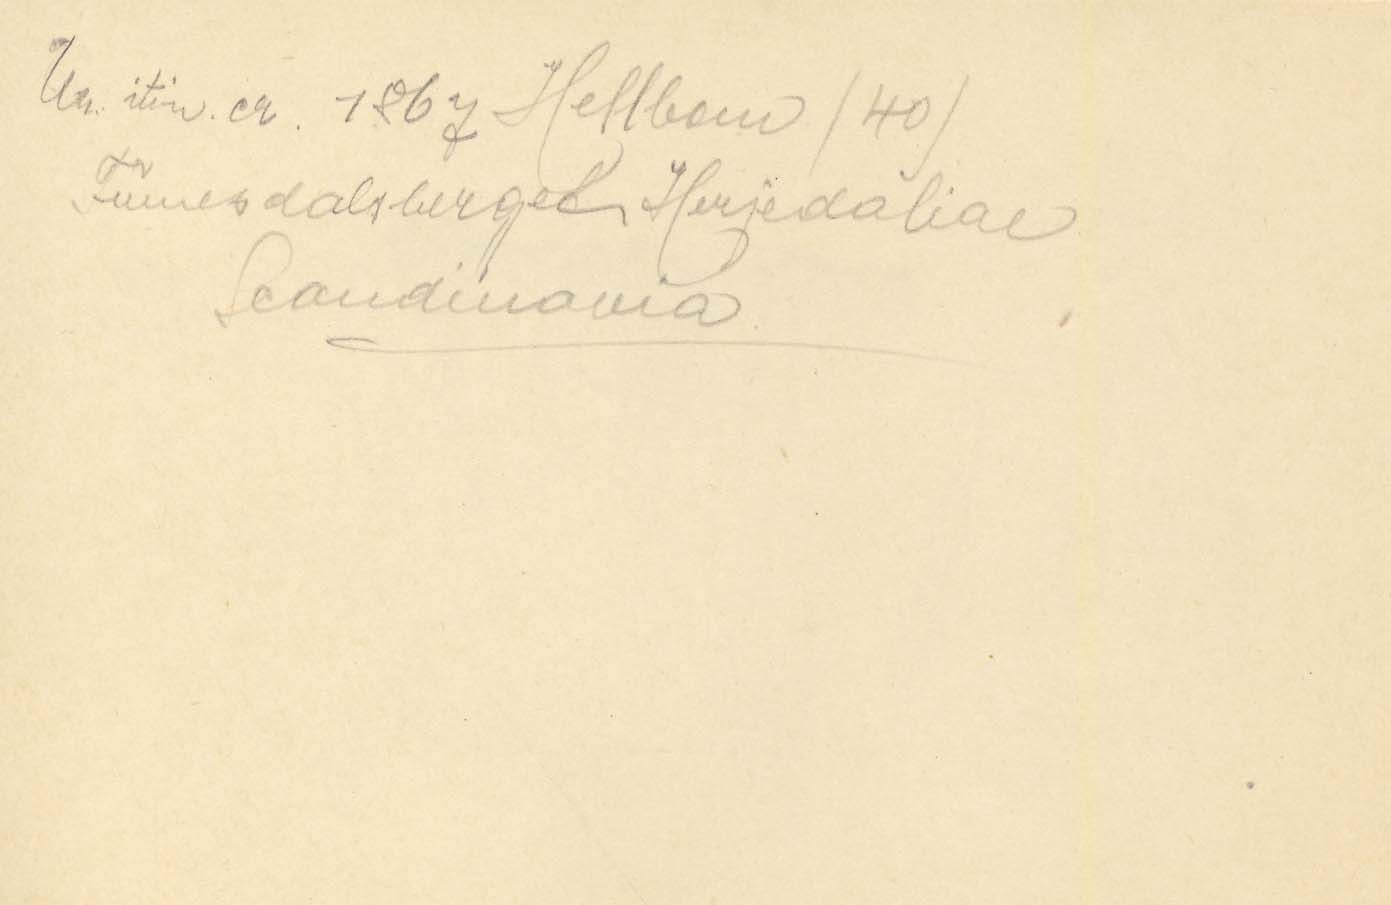 Un. itin. cr. 1867 Hellbom (40)
Funnesdalsberget Herjedaliae
Scandinavia